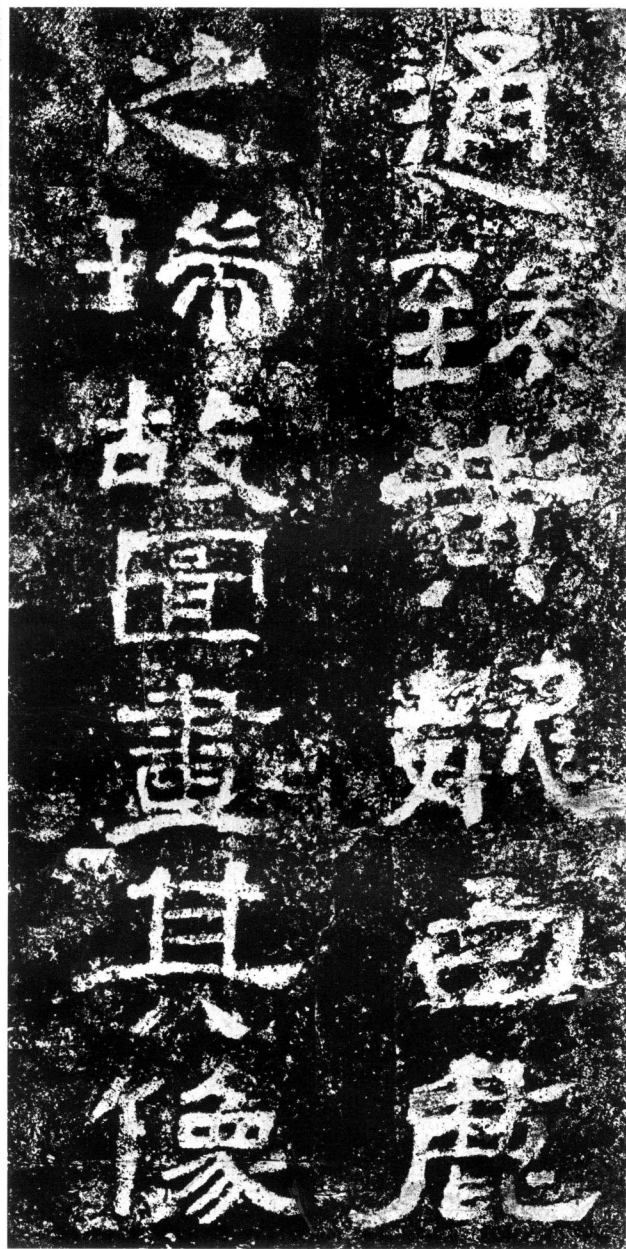 通致黄龍白鹿
之瑞故圖畫其像